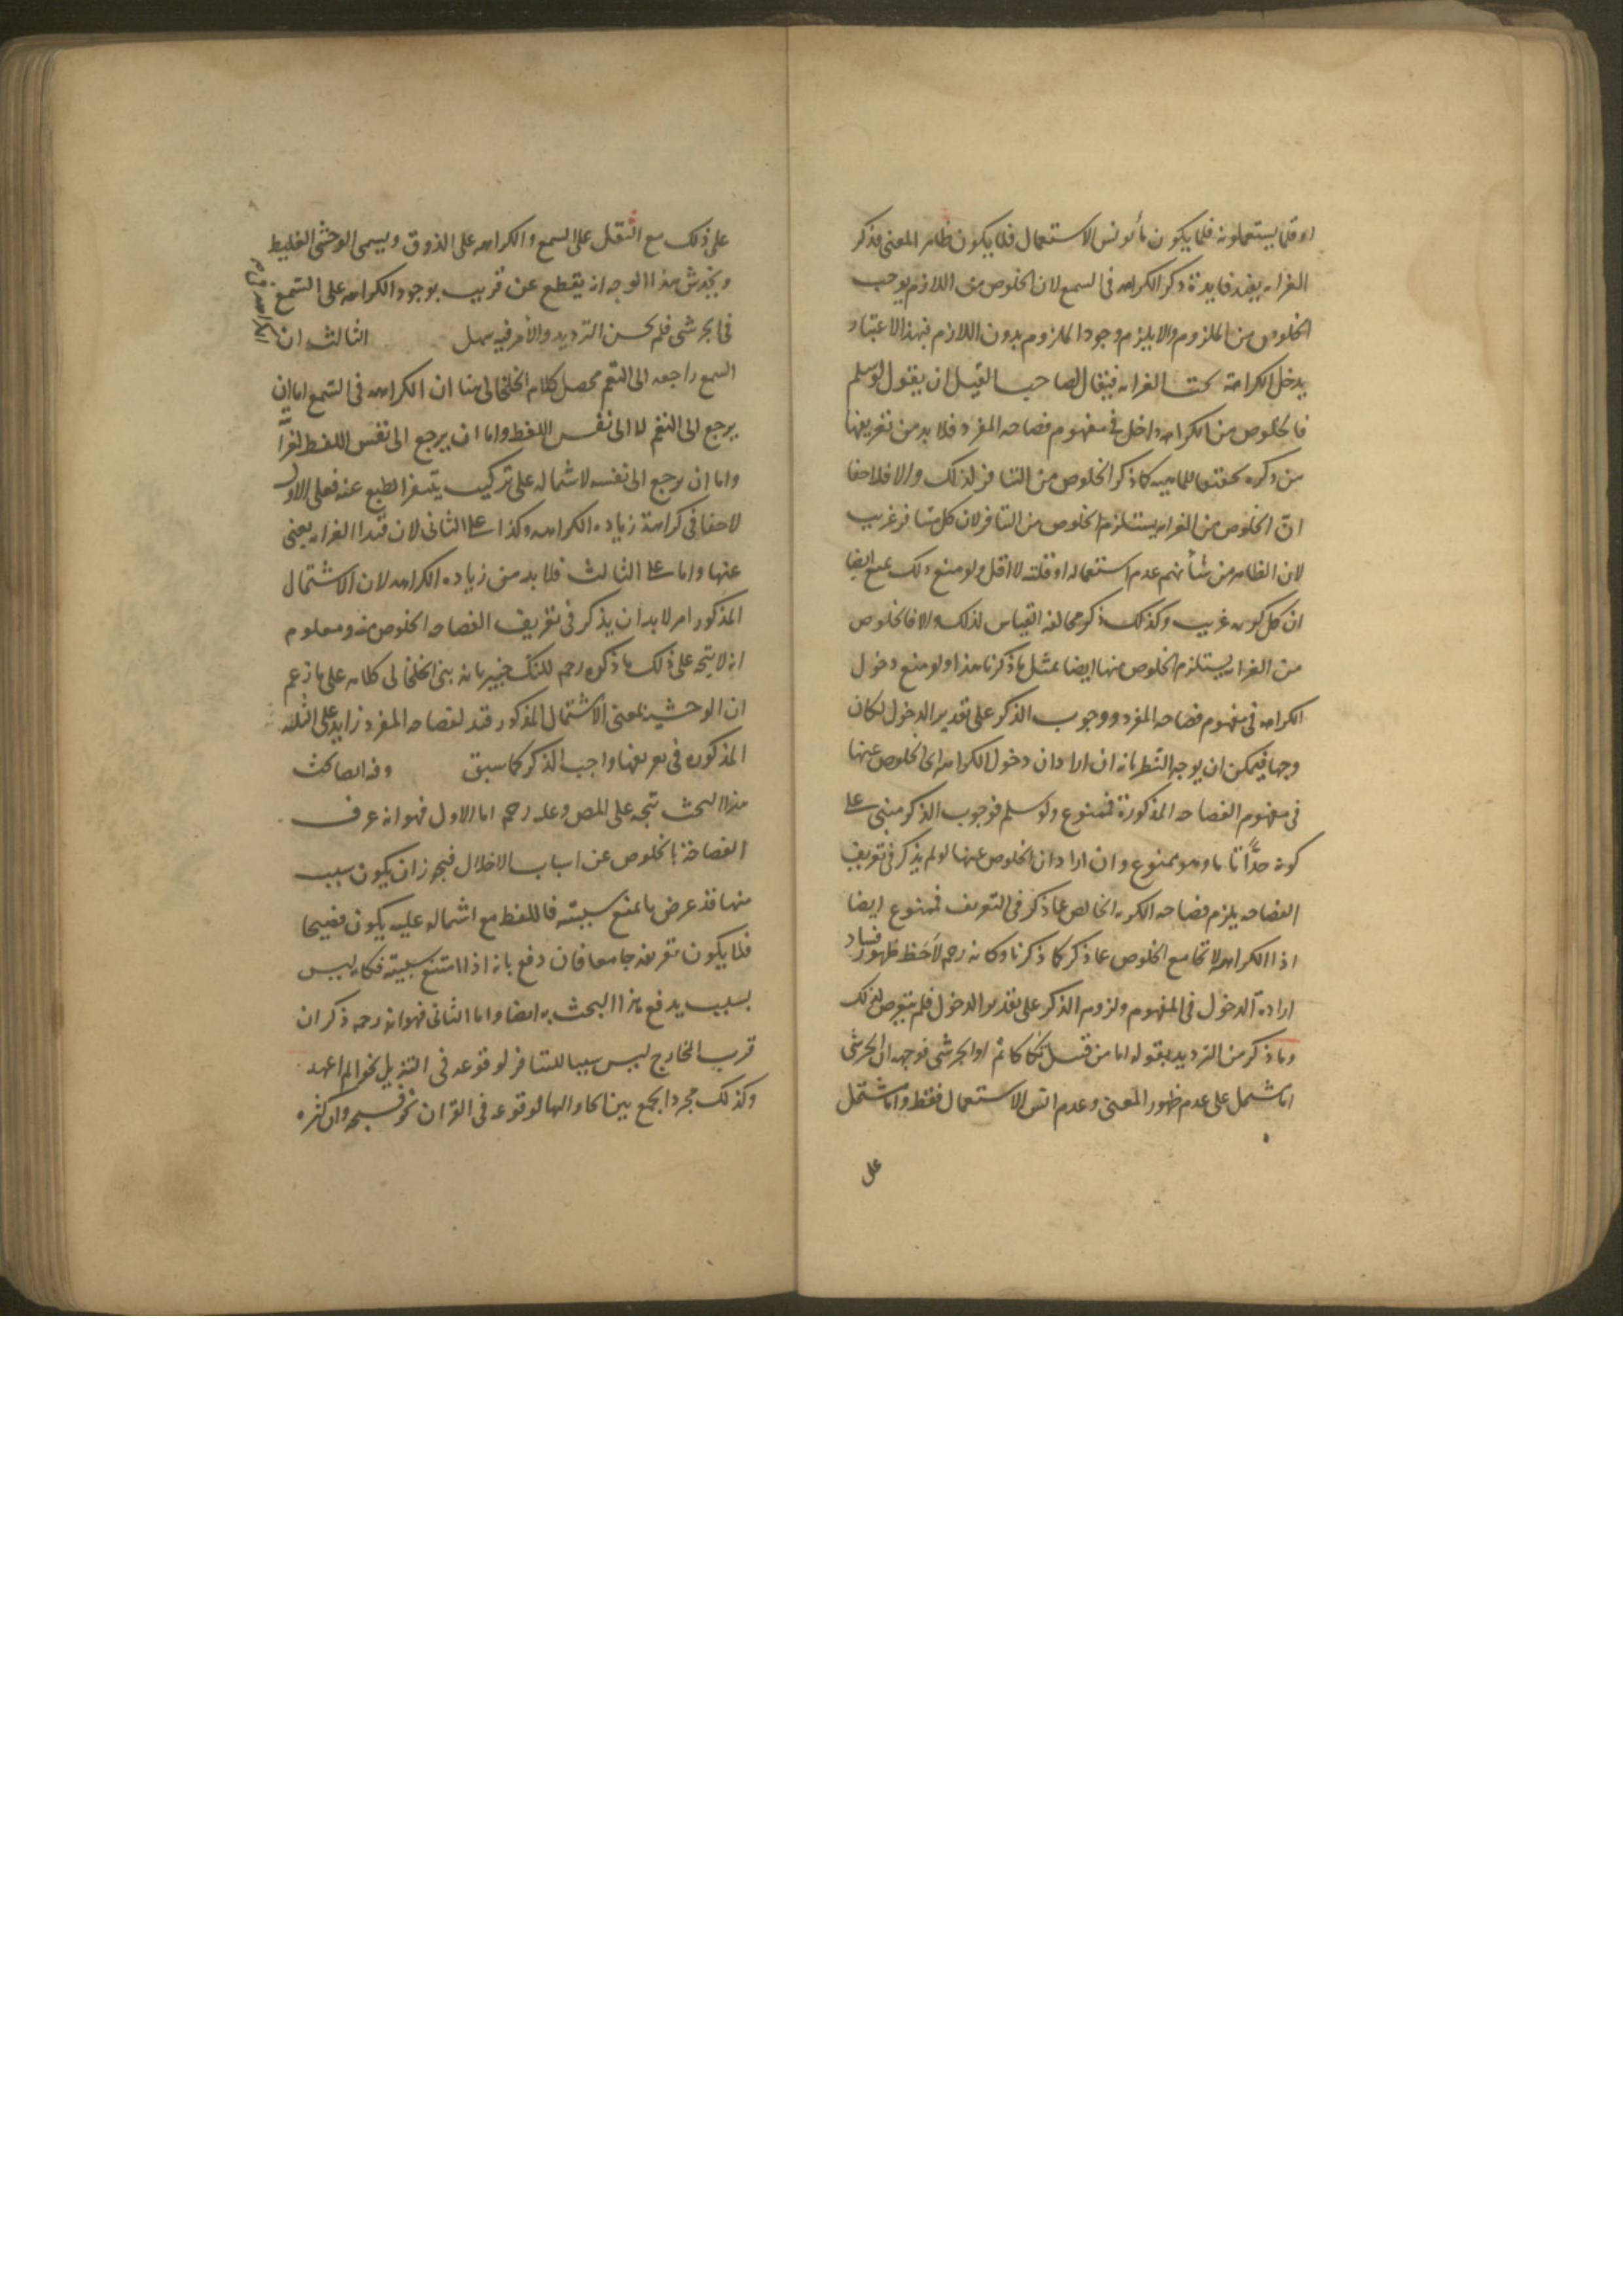 او قلما يستعملونه فلما يكون مأنوس الاستعمال فلا يكون ظاهر المعنى فذكر
الغرابه يفيد فايدة ذكر الكراهه فى السمع لان الخلوص من اللازم يوجب
الخلوص من الملزوم والا يلزم وجود الملزوم بدون اللازم فبهذا الاعتبار
يدخل الكراهة تحت الغرابه فيقال لصاحب القيل ان يقول لو سلم
فالخلوص من الكراهه داخل فى مفهوم فصاحه المفرد فلا بد من تعريفها
من ذكره تحقيقا للماهيه كما ذكر الخلوص من التنافر لذلك والا فلا خفا
ان الخلوص من الغرابه يستلزم الخلوص من التنافر لان كل متنافر غريب
لان الظاهر من شأنهم عدم استعماله او قلته لا اقل ولو منع ذلك يمنع ايضا
ان كل كريه غريب وكذلك ذكر مخالفه القياس لذلك والا فالخلوص
من الغرابه يستلزم الخلوص منها ايضا بمثل ما ذكرنا هذا ولو منع دخول
الكراهه فى مفهوم فصاحه المفرد ووجوب الذكر على تقدير الدخول لكان
وجها فيمكن ان يوجه النظر بانه ان اراد ان دخول الكراهه اى الخلوص عنها
فى مفهوم الفصاحه المذكورة فممنوع ولو سلم فوجوب الذكر مبنى على
كونه حدًّا تاما وهو ممنوع وان اراد ان الخلوص عنها لو لم يذكر فى تعريف
الفصاحه يلزم فصاحه الكريه الخالص عما ذكر فى التعريف فممنوع ايضا
اذ الكراهه لا تجامع الخلوص عما ذكر كما ذكرنا وكانه رحمه لاحظ ظهور فساد
اراده الدخول فى المفهوم ولزوم الذكر على تقدير الدخول فلم يتعرض لذلك
وما ذكر من الترديد بقوله اما من قبيل تكاكاتم او الجرشى فوجهه ان الجرشى
اما يشتمل على عدم ظهور المعنى وعدم انس الاستعمال فقط واما يشتمل
على
على ذلك مع الثقل على السمع والكراهه على الذوق ويسمى الوحشى الغليظ
ويخدش هذا الوجه انه يقطع عن قريب بوجود الكراهه على السمع
فى الجرشى فلم يحسن الترديد والأمر فيه سهل الثالث ان
الكراهه فى
السمع راجعه الى النغم محصل كلام الخلخالى هنا ان الكراهه فى السمع اما ان
يرجع الى النغم لا الى نفس اللفظ واما ان يرجع الى نفس اللفظ لغرابته
واما ان يرجع الى نفسه لاشتماله على تركيب يتنفر الطبع عنه فعلى الاول
لا خفا فى كراهة زياده الكراهه وكذا على الثانى لان قيد الغرابه يغنى
عنها واما على الثالث فلا بد من زياده الكراهه لان الاشتمال
المذكور امر لا بد ان يذكر فى تعريف الفصاحه الخلوص منه ومعلوم
انه لا يتجه على ذلك ما ذكره رحمه لكنك خبير بانه بنى الخلخالى كلامه على ما زعم
ان الوحشية بمعنى الاشتمال المذكور قيد لفصاحه المفرد زايد على الثلثه
المذكوره فى تعريفها واجب الذكر كما سبق وفيه ايضا بحث
هذا البحث يتجه على المص وعليه رحمه اما الاول فهو انه عرف
الفصاحة بالخلوص عن اسباب الاخلال فيجوز ان يكون سبب
منها قد عرض ما يمنع سببيته فاللفظ مع اشتماله عليه يكون فصيحا
فلا يكون تعريفه جامعا فان دفع بانه اذا امتنع سببيته فكانه ليس
بسبب يدفع هذا البحث به ايضا واما الثانى فهو انه رحمه ذكر ان
قرب المخارج ليس سببا للتنافر لوقوعه فى التنزيل نحو الم اعهد
وكذلك مجرد الجمع بين الحا والها لوقوعه فى القران نحو فسبحه وان كثره